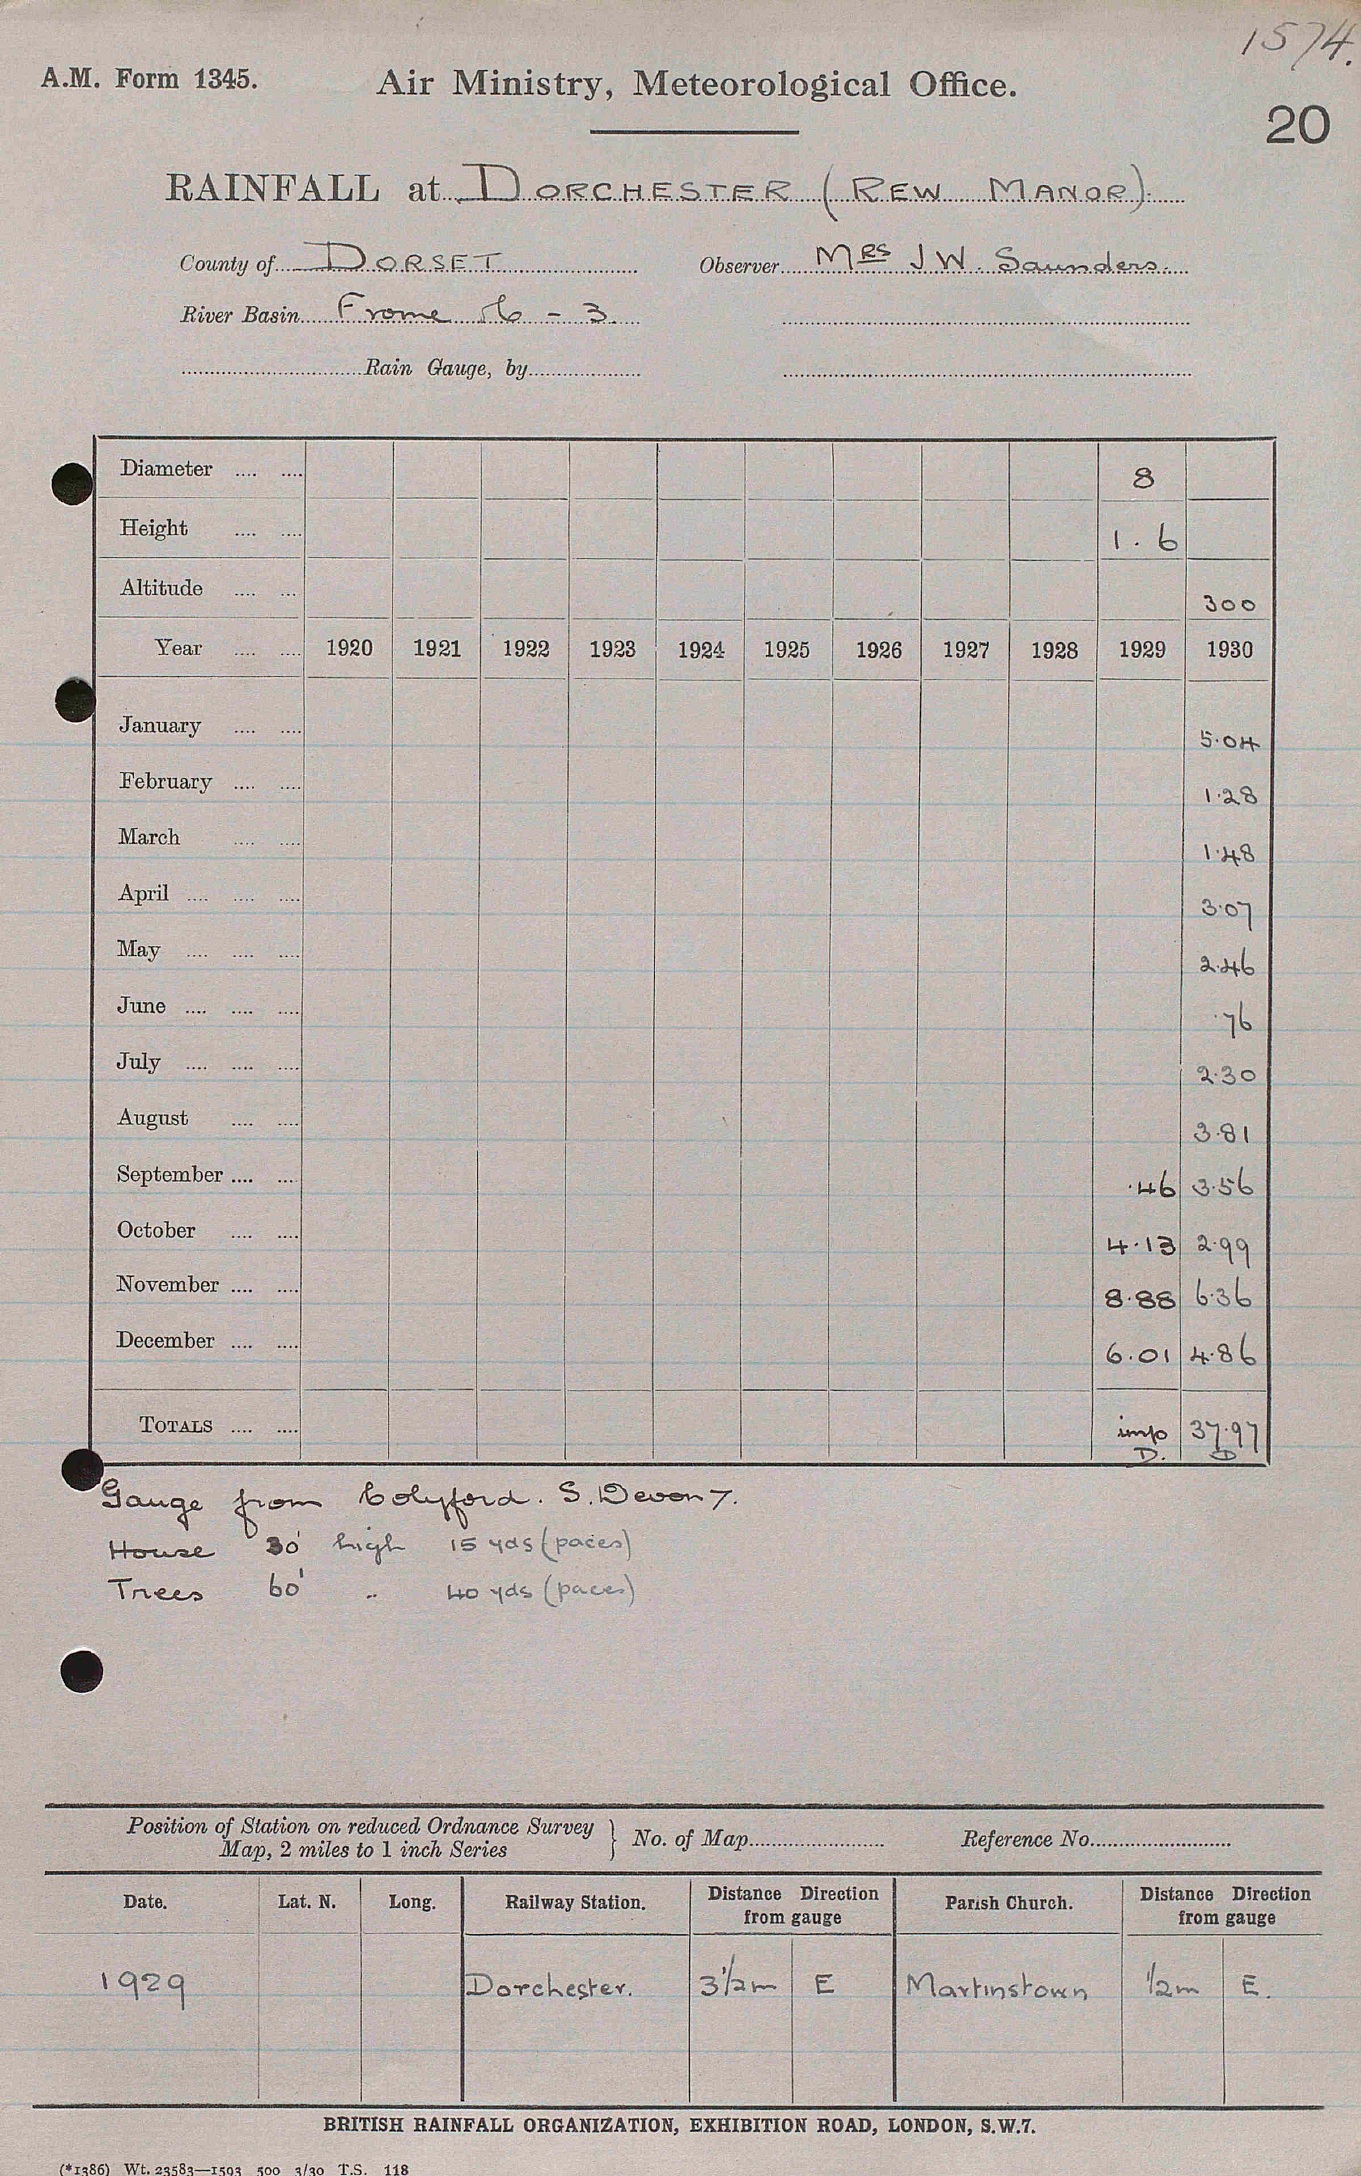 1574.
A.M. Form 1345. Air Ministry, Meteorological Office.
20
RAINFALL at DORCHESTER (REW MANOR).
County of DORSET Observer MRS J W. Saunders.
River Basin Frome - 3.
Rain Gauge, by
Diameter .... .... 8
Height .... .... 1.6
Altitude .... ... 300
Year .... .... 1920 1921 1922 1923 1924 1925 1926 1927 1928 1929 1930
January .... .... 5.04
February .... .... 1.28
March .... .... 1.48
April .... .... .... 3.07
May .... .... .... 2.46
June .... .... .... .76
July .... .... .... 2.30
August .... .... 3.81
September .... .... .46 3.56
October .... .... 4.13 2.99
November .... .... 8.88 6.36
December .... .... 6.01 4.86
TOTALS .... .... imp 37.97
D. D
Gauge from Colyford. S. Devon 7.
House 30' high 15 yds (paces)
Trees 60' .. 40 yds (paces)
Position of Station on reduced Ordnance Survey
Map, 2 miles to 1 inch Series } No. of Map Reference No.
Date. Lat. N. Long. Railway Station. Distance Direction from gauge Parish Church. Distance Direction from gauge
1929 Dorchester. 3 1/2 m E Martinstown 1/2 m E.
BRITISH RAINFALL ORGANIZATION, EXHIBITION ROAD, LONDON, S.W.7.
(*1386) Wt. 23583—1593 500 3/30 T.S. 118